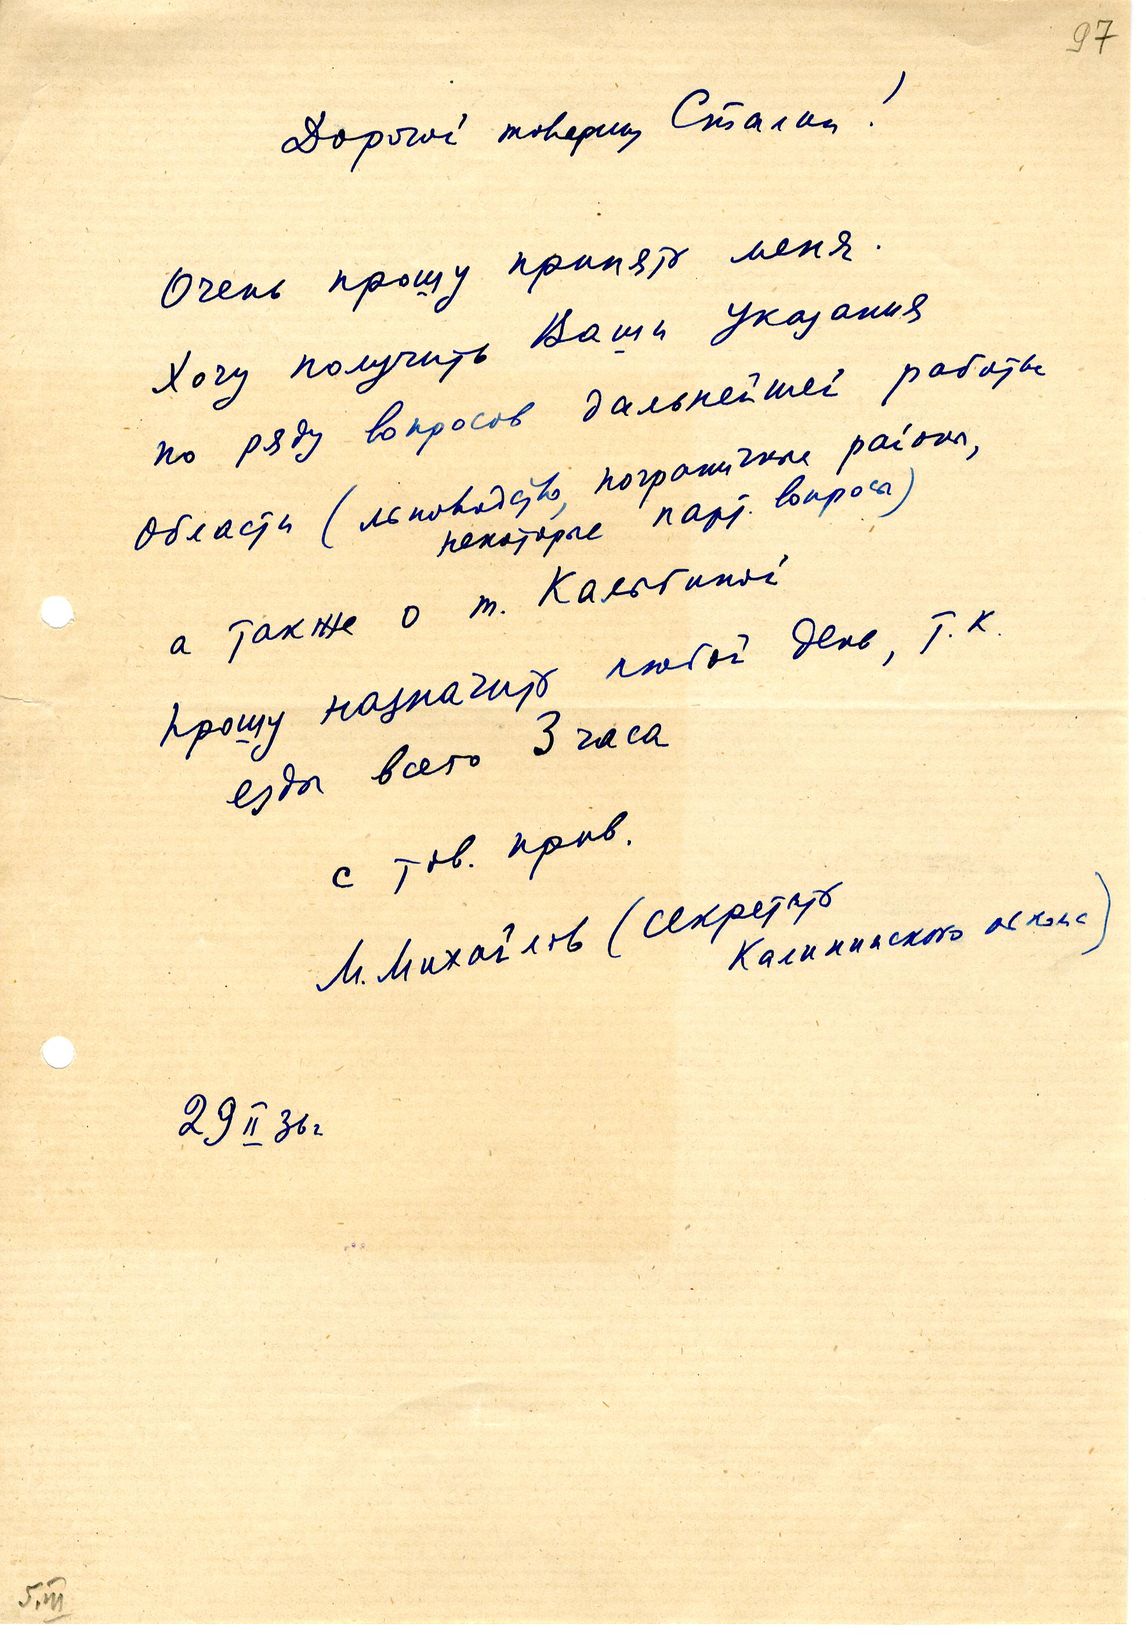 97
Дорогой товарищ Сталин!
Очень прошу принять меня.
Хочу получить Ваши указания
по ряду вопросов дальнейшей работы
области (льноводство, пограничные районы,
некоторые парт. вопросы)
а также о т. Калыгиной
Прошу назначить любой день, т.к.
езды всего 3 часа
с тов. прив.
М. Михайлов (секретарь
Калининского обкома)
29 II 36г
5.III